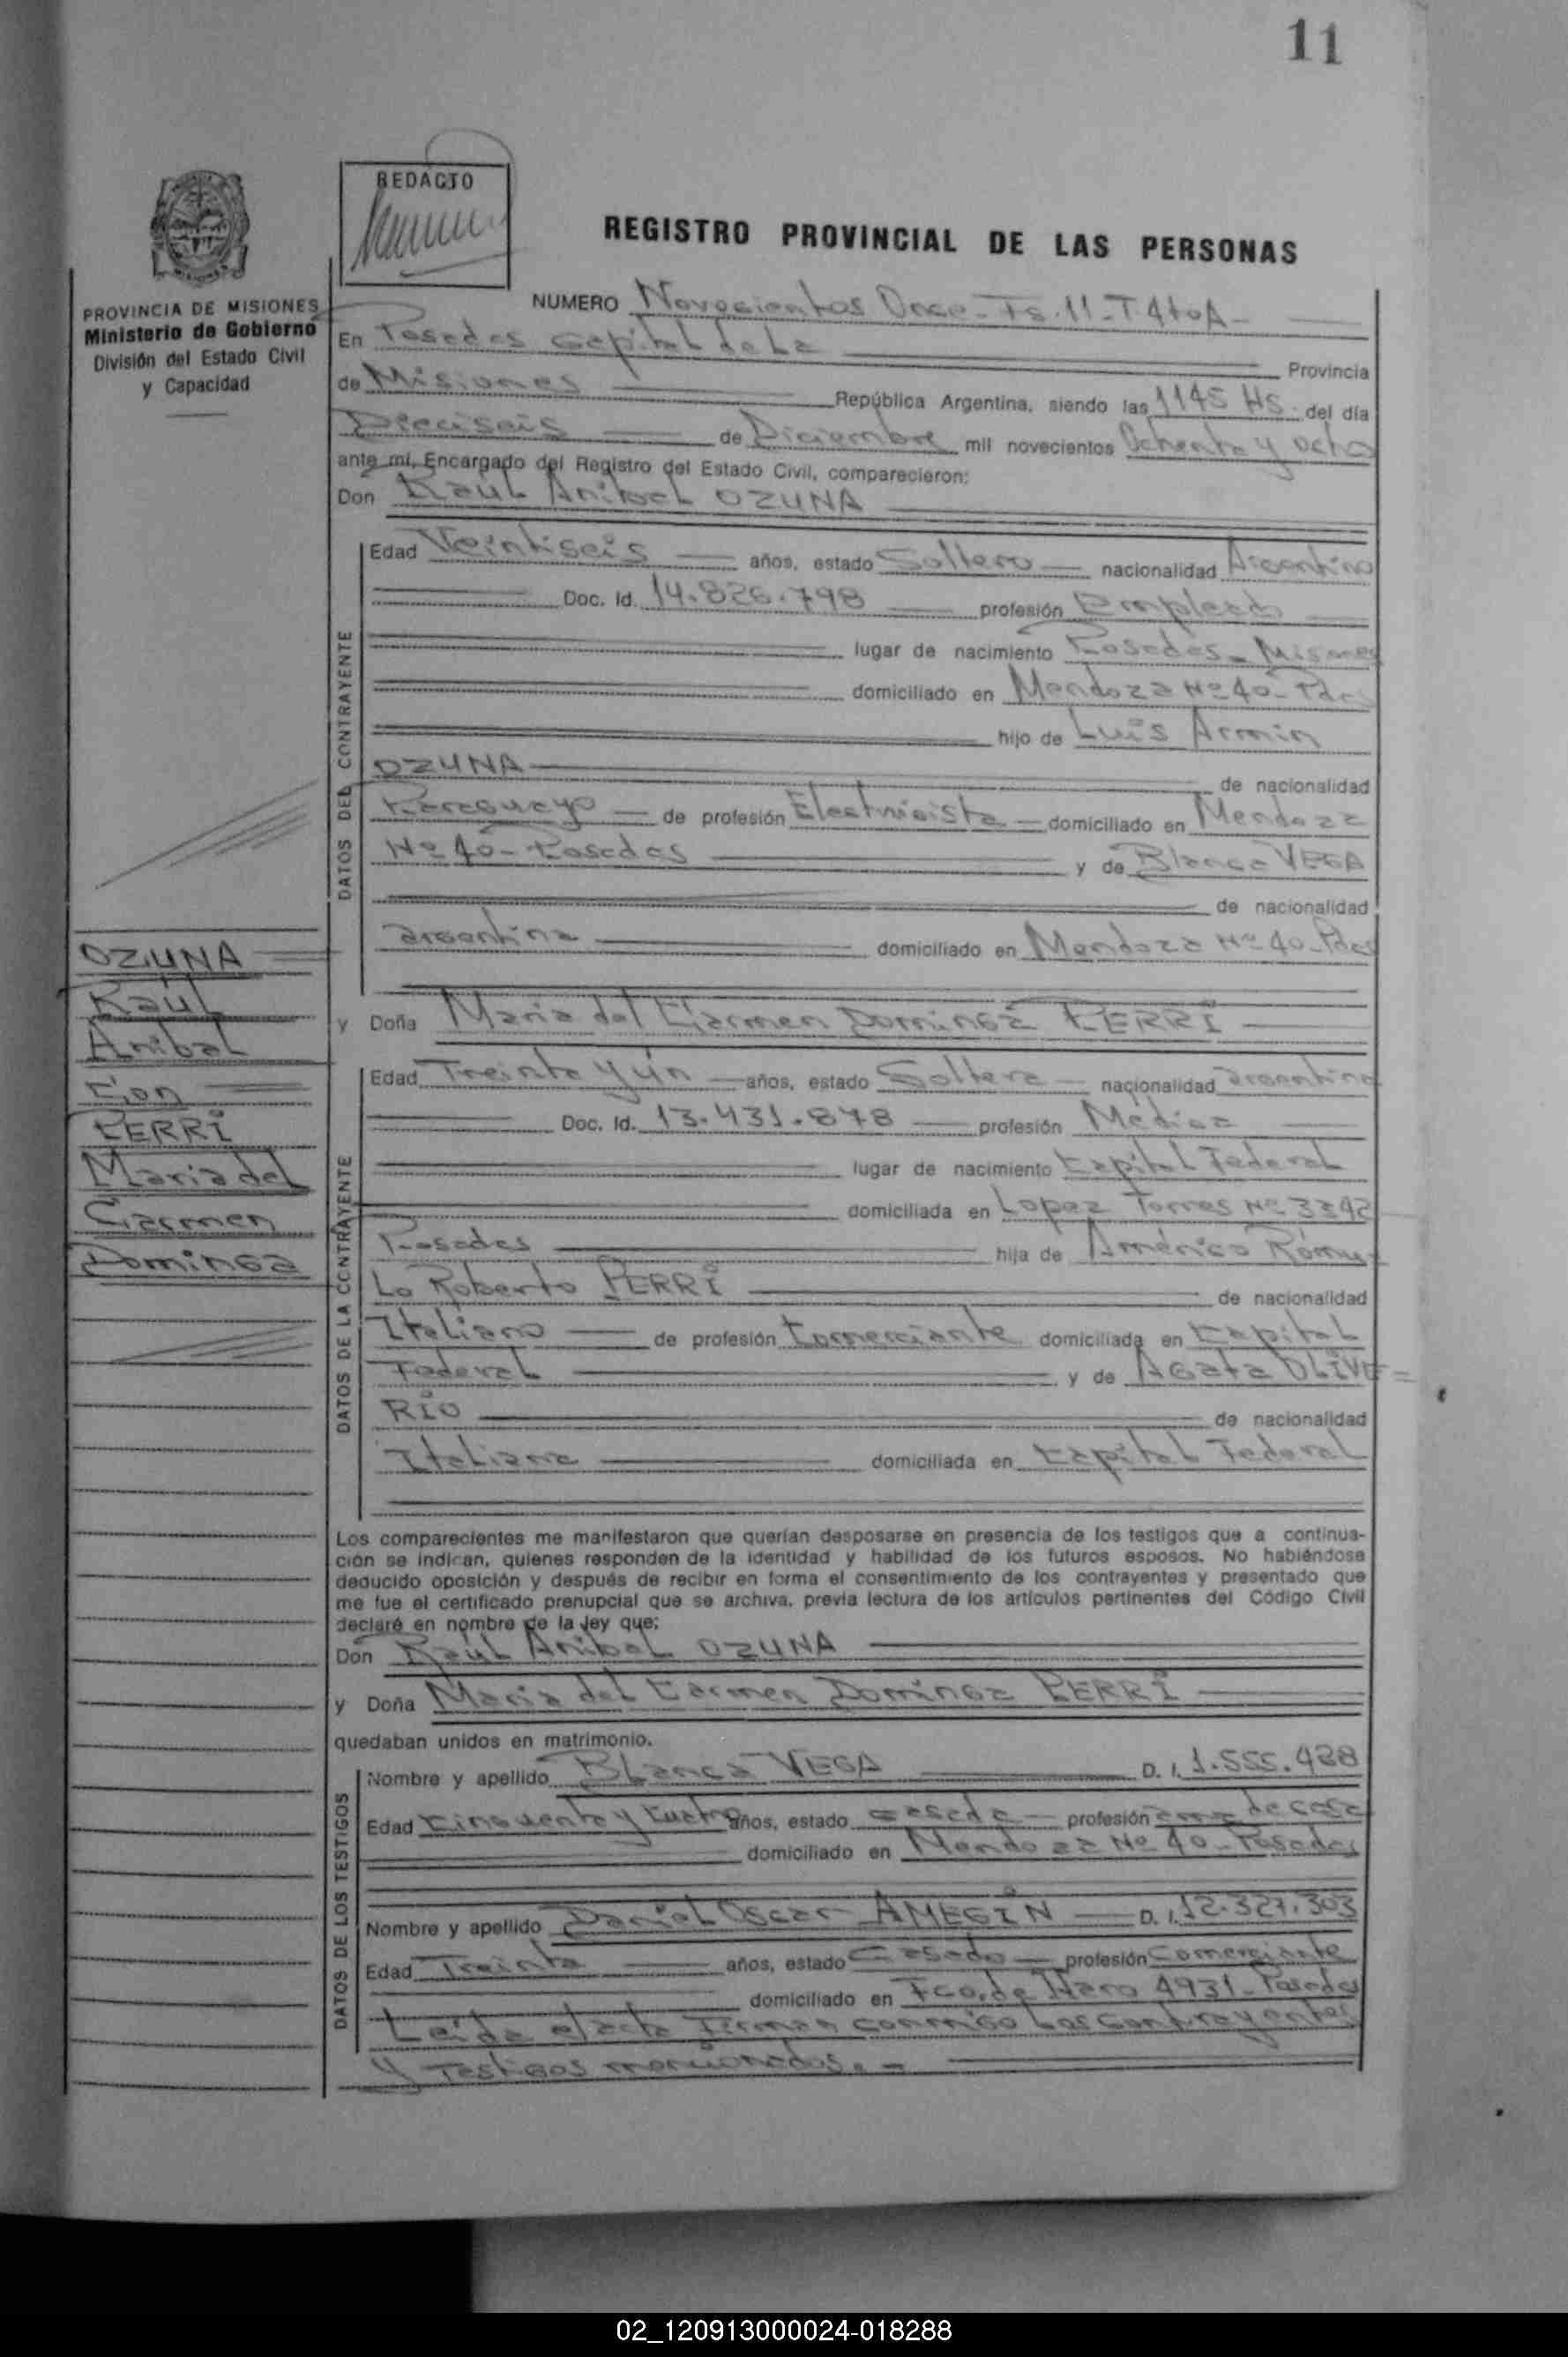 11
REDACTO
REGISTRO PROVINCIAL DE LAS PERSONAS
PROVINCIA DE MISIONES
Ministerio de Gobierno
División del Estado Civil
y Capacidad
NUMERO Novecientos Once - Fs. 11 - T 4to A -
En Posadas Capital de La Provincia
de Misiones República Argentina, siendo las 1145 Hs. del día
Dieciseis de Diciembre mil novecientos Ochenta y ocho
ante mí, Encargado del Registro del Estado Civil, comparecieron:
Don Raúl Anibal OZUNA
DATOS DEL CONTRAYENTE
Edad Veintiseis años, estado Soltero nacionalidad Argentino
Doc. Id. 14.826.798 profesión Empleado
lugar de nacimiento Posadas - Misiones
domiciliado en Mendoza Nº 40 - Pdas
hijo de Luis Armin
OZUNA de nacionalidad
Paraguayo de profesión Electricista domiciliado en Mendoza
Nº 40 - Posadas y de Blanca VEGA
de nacionalidad
argentina domiciliado en Mendoza Nº 40 - Pdas
OZUNA
Raúl
Anibal
Con
PERRI
Maria del
Carmen
Dominga
y Doña Maria del Carmen Dominga PERRI
DATOS DE LA CONTRAYENTE
Edad Treinta y un años, estado Soltera nacionalidad argentina
Doc. Id. 13.431.878 profesión Médica
lugar de nacimiento Capital Federal
domiciliada en Lopez Torres Nº 3342
Posadas hija de Américo Rómu-
Lo Roberto PERRI de nacionalidad
Italiano de profesión Comerciante domiciliada en Capital
Federal y de Agata OLIVE=
RIO de nacionalidad
Italiana domiciliada en Capital Federal
Los comparecientes me manifestaron que querían desposarse en presencia de los testigos que a continua-
ción se indican, quienes responden de la identidad y habilidad de los futuros esposos. No habiéndose
deducido oposición y después de recibir en forma el consentimiento de los contrayentes y presentado que
me fue el certificado prenupcial que se archiva, previa lectura de los artículos pertinentes del Código Civil
declaré en nombre de la ley que:
Don Raúl Anibal OZUNA
y Doña Maria del Carmen Dominga PERRI
quedaban unidos en matrimonio.
DATOS DE LOS TESTIGOS
Nombre y apellido Blanca VEGA D. I. 1.555.428
Edad Cincuenta y Cuatro años, estado casada profesión ama de casa
domiciliado en Mendoza Nº 40 - Posadas
Nombre y apellido Daniel Oscar AMEGIN D. I. 12.327.303
Edad Treinta años, estado Casado profesión Comerciante
domiciliado en Fco. de Haro 4931 - Posadas
Leida el acta Firman conmigo Los contrayentes
y Testigos mencionados. -
02_120913000024-018288